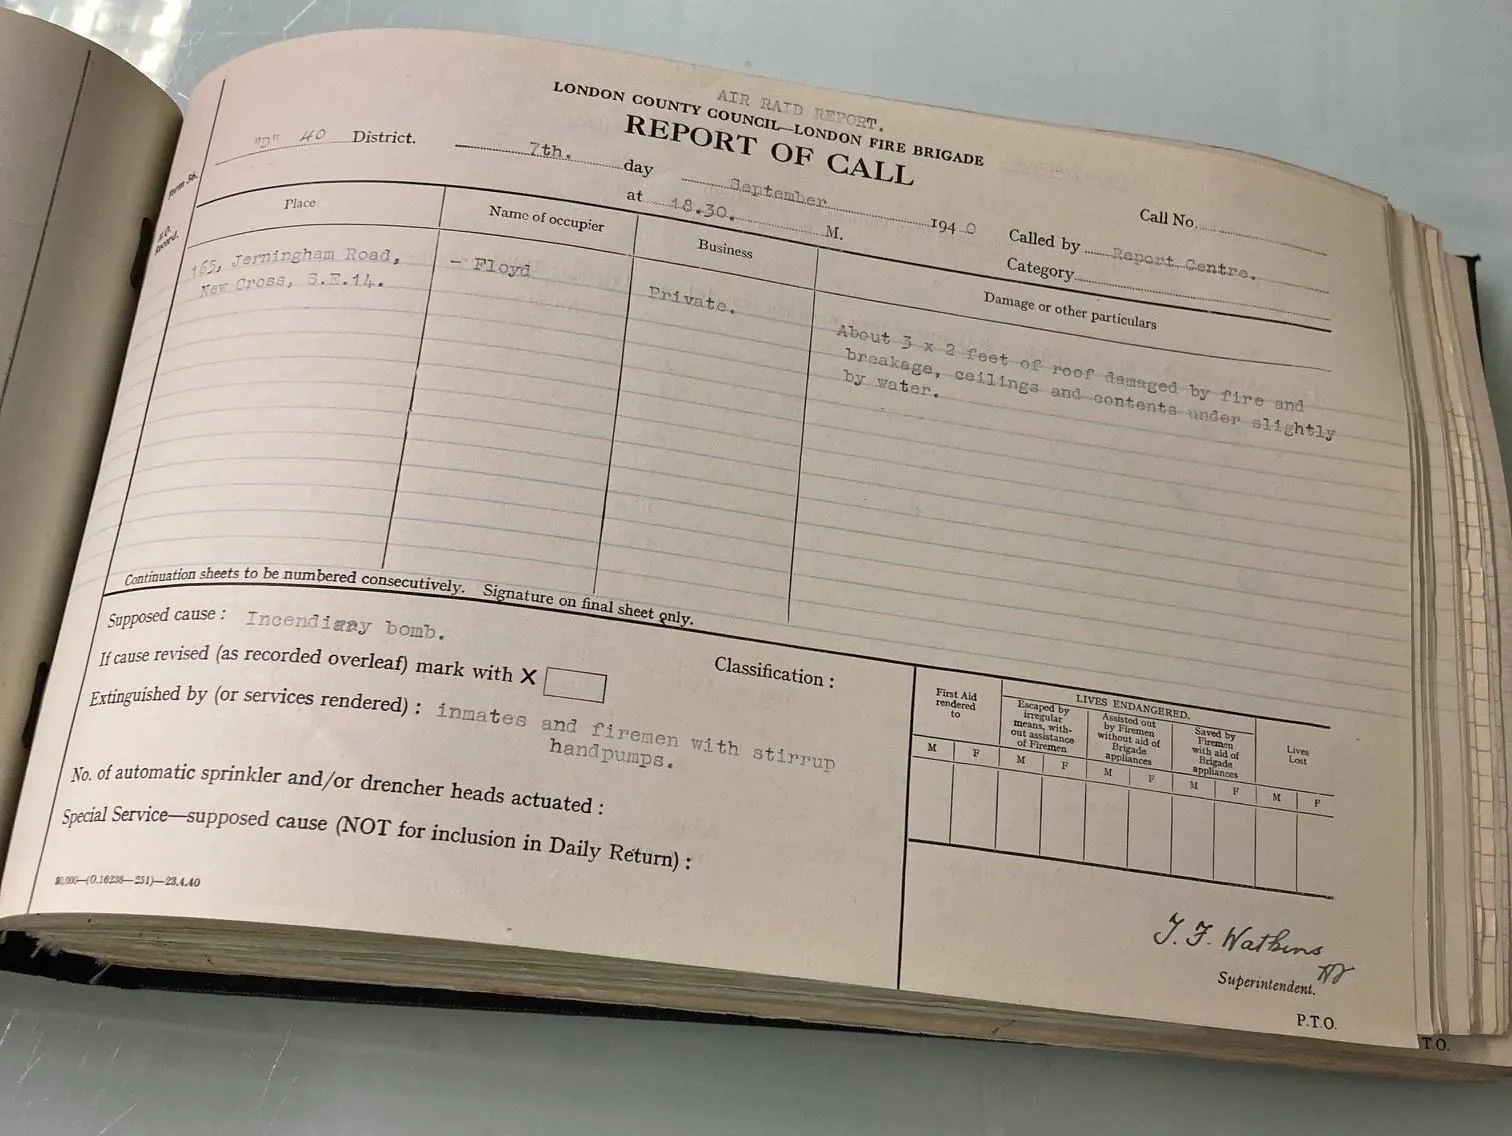 AIR RAID REPORT.
LONDON COUNTY COUNCIL—LONDON FIRE BRIGADE
REPORT OF CALL
"D" 40 District.
7th. day September 1940
at 18.30. M.
Call No.
Called by Report Centre.
Category
Form 36.
H.Q. Record.
Place
Name of occupier
Business
Damage or other particulars
165, Jerningham Road,
New Cross, S.E.14.
- Floyd
Private.
About 3 x 2 feet of roof damaged by fire and
breakage, ceilings and contents under slightly
by water.
Continuation sheets to be numbered consecutively. Signature on final sheet only.
Supposed cause : Incendiary bomb.
If cause revised (as recorded overleaf) mark with X
Classification :
Extinguished by (or services rendered) : inmates and firemen with stirrup
handpumps.
No. of automatic sprinkler and/or drencher heads actuated :
Special Service—supposed cause (NOT for inclusion in Daily Return) :
First Aid
rendered
to
LIVES ENDANGERED.
Escaped by
irregular
means, with-
out assistance
of Firemen
Assisted out
by Firemen
without aid of
Brigade
appliances
Saved by
Firemen
with aid of
Brigade
appliances
Lives
Lost
M F M F M F M F M F
(O.16236—251)—23.4.40
Watkins
Superintendent.
P.T.O.
T.O.